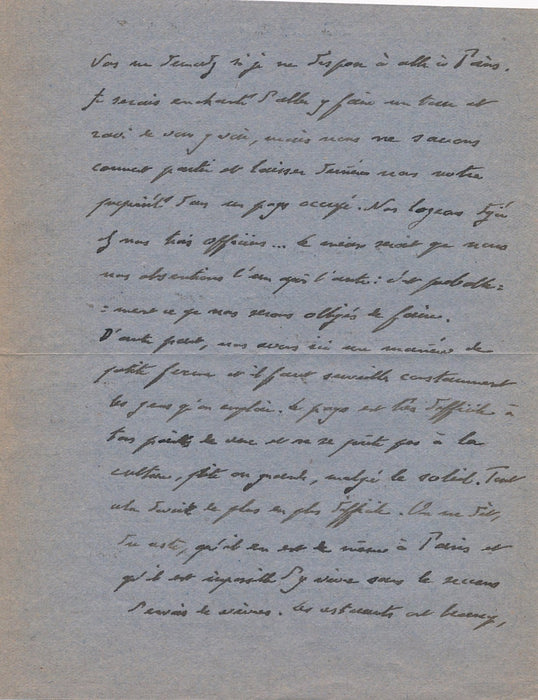 Vous me demandez si je ne dispose à aller à Paris.
Je serais enchanté d'aller y faire un tour et
ravi de vous y voir, mais nous ne savons
comment partir et laisser derrière nous notre
propriété dans un pays occupé. Nous logeons déjà
chez nous trois officiers... le mieux serait que nous
nous absentions l'un après l'autre : c'est probable=
=ment ce que nous serons obligés de faire.
D'autre part, nous avons ici une manière de
petite ferme et il faut surveiller constamment
les gens qu'on emploie. Le pays est très difficile à
tous points de vue et ne se prête pas à la
culture, petite ou grande, malgré le soleil. Tout
cela devient de plus en plus difficile. On me dit,
du reste, qu'il en est de même à Paris et
qu'il est impossible d'y vivre sans le secours
d'envois de vivres. Les restaurants ont beaucoup,